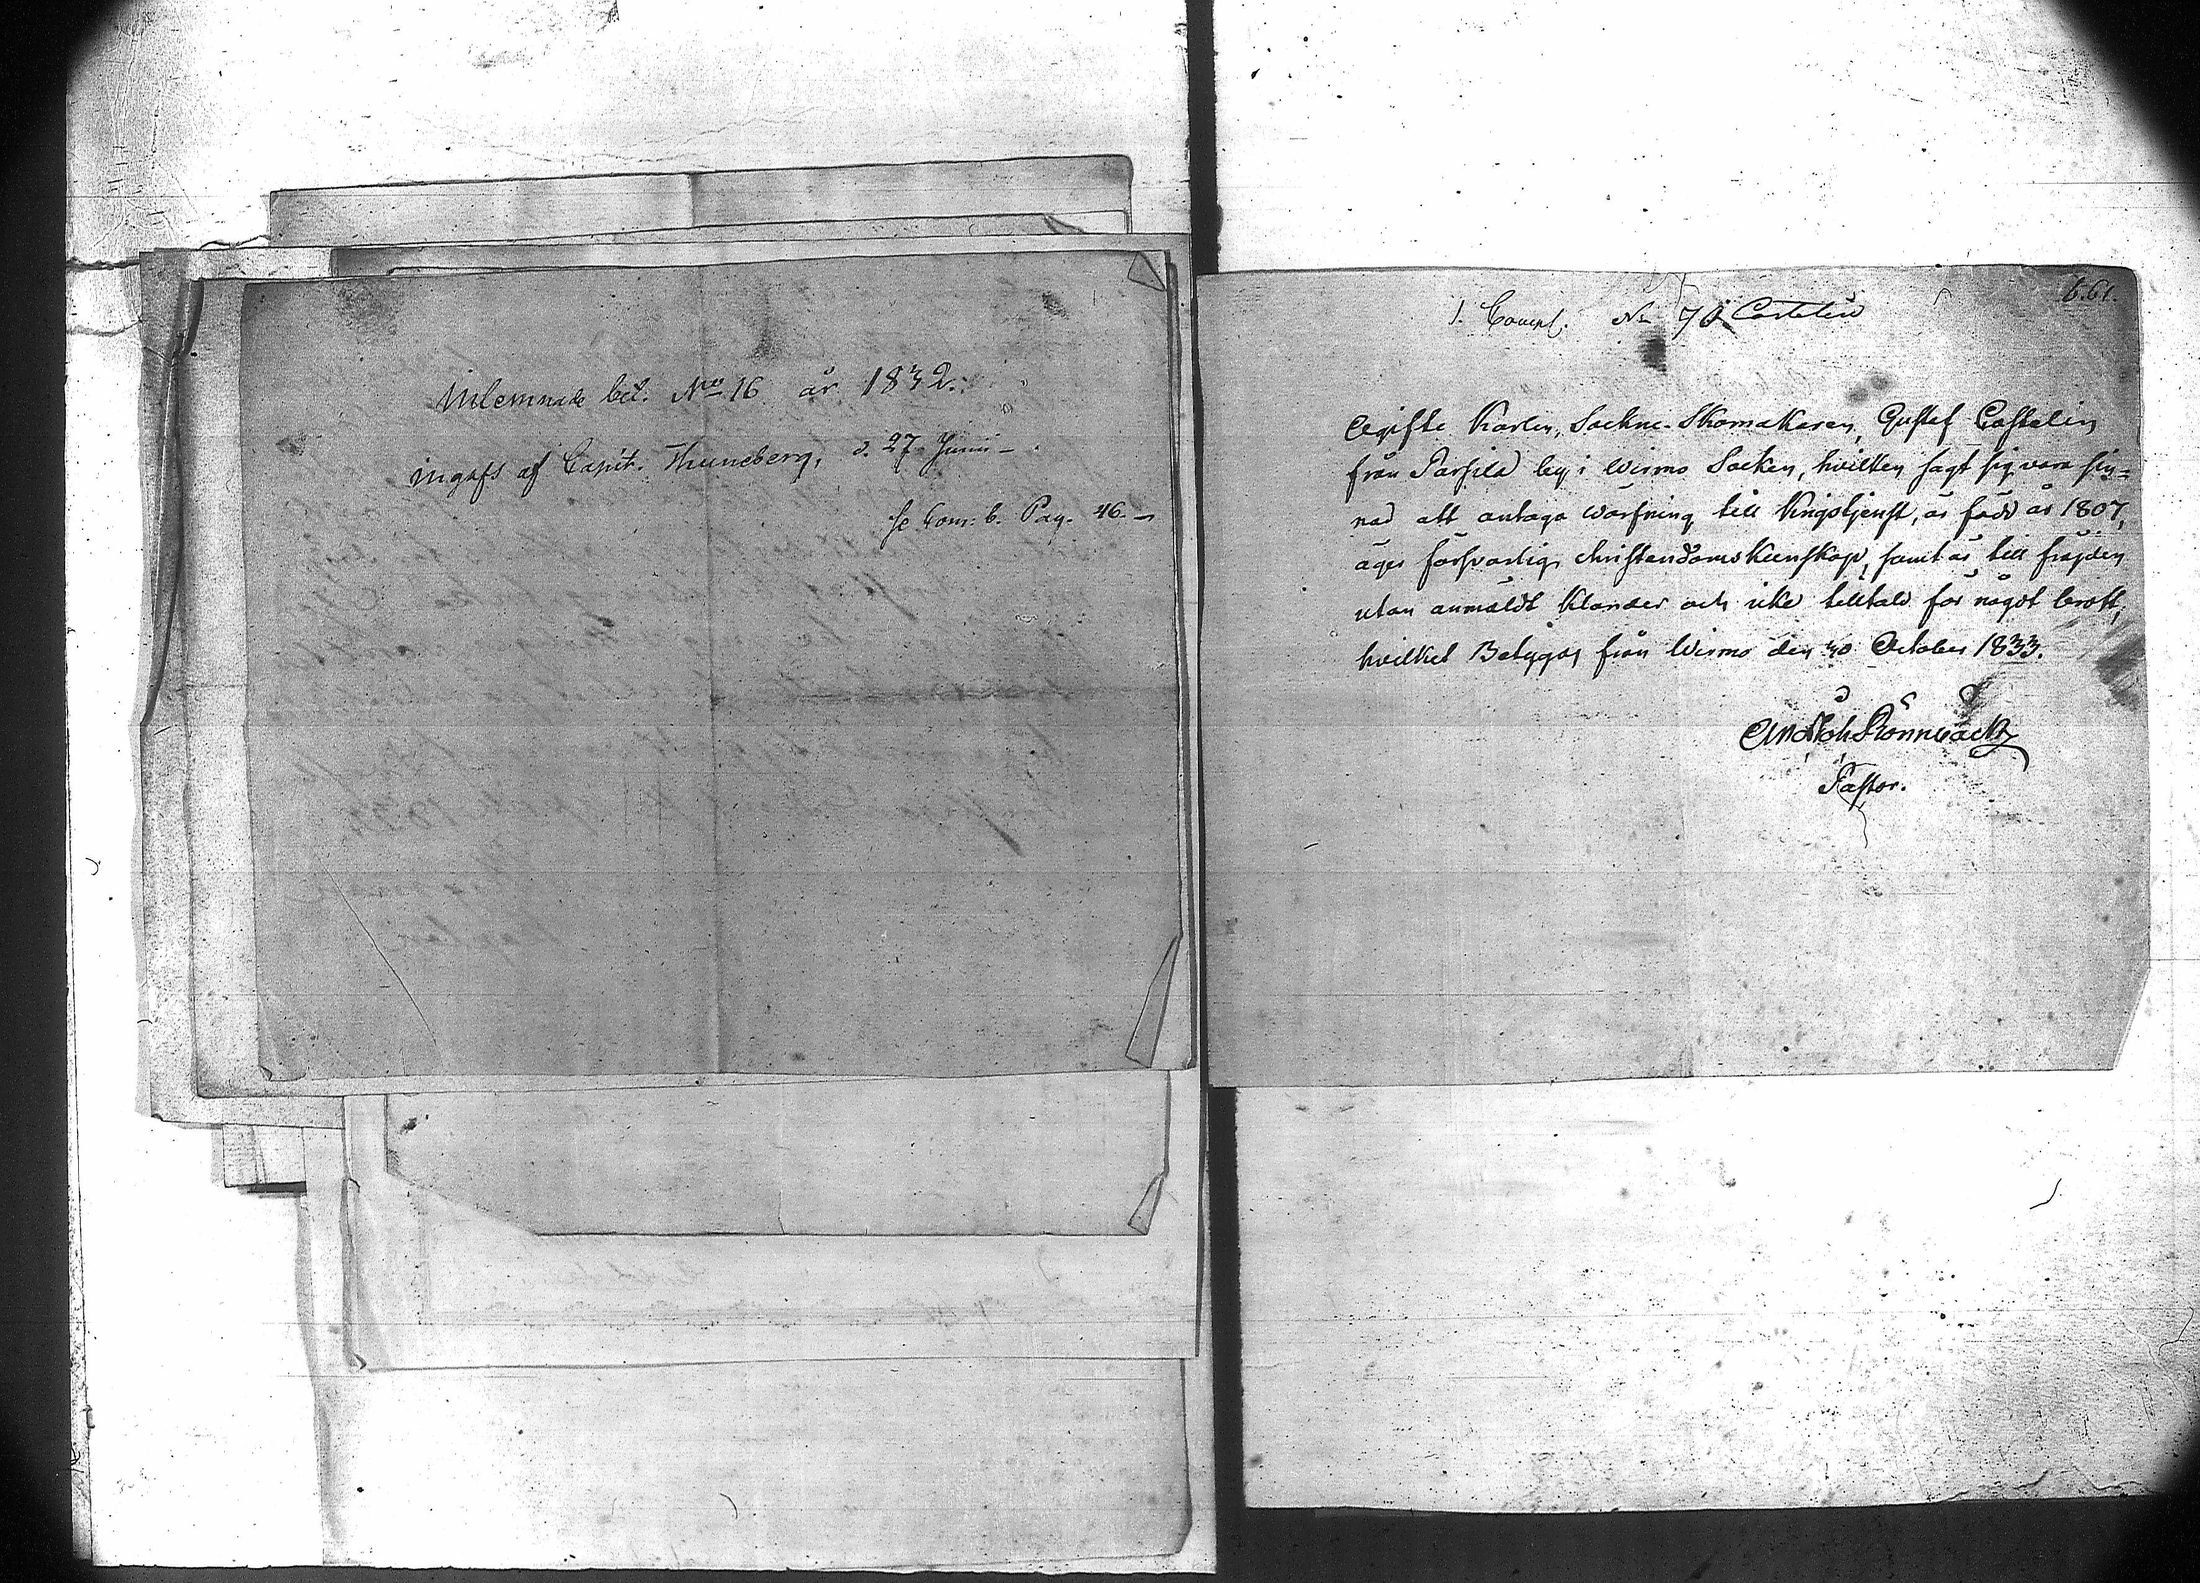 Inlemnade bet. No 16 år 1832.
ingafs af Capit. Thuneberg, d. 27 Junii –
se Com: b. Pag. 46. –
b.61.
1. Comp. No 70 Castelin
Ogifte Karlen, Sockne-Skomakaren, Gustaf Castelin
från Parsila by i Wirmo Socken, hvilken sagt sig vara sin-
nad att antaga wärfning till Krigstjenst, är född år 1807,
äger försvarlig christendomskunskap, samt är till frejden
utan anmäldt klander och icke tilltald för något brott,
hvilket Betygas från Wirmo den 30 October 1833.
And Joh Rönnbäck
Pastor.